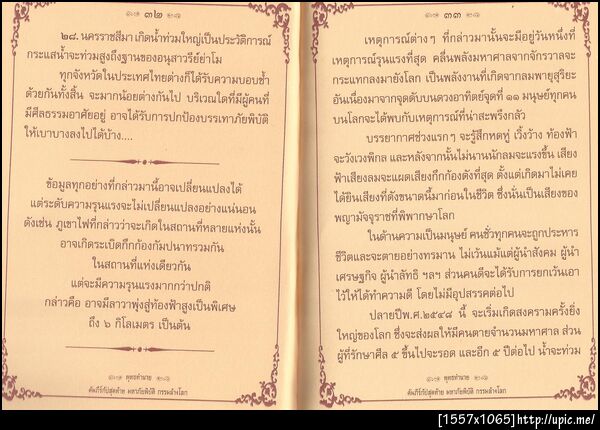 ๓๒
๒๘. นครราชสีมา เกิดน้ำท่วมใหญ่เป็นประวัติการณ์
กระแสน้ำจะท่วมสูงถึงฐานของอนุสาวรีย์ย่าโม
ทุกจังหวัดในประเทศไทยต่างก็ได้รับความบอบช้ำ
ด้วยกันทั้งสิ้น จะมากน้อยต่างกันไป บริเวณใดที่มีผู้คนที่
มีศีลธรรมอาศัยอยู่ อาจได้รับการปกป้องบรรเทาภัยพิบัติ
ให้เบาบางลงไปได้บ้าง....
ข้อมูลทุกอย่างที่กล่าวมานี้อาจเปลี่ยนแปลงได้
แต่ระดับความรุนแรงจะไม่เปลี่ยนแปลงอย่างแน่นอน
ดังเช่น ภูเขาไฟที่กล่าวว่าจะเกิดในสถานที่หลายแห่งนั้น
อาจเกิดระเบิดกึกก้องกัมปนาทรวมกัน
ในสถานที่แห่งเดียวกัน
แต่จะมีความรุนแรงมากกว่าปกติ
กล่าวคือ อาจมีลาวาพุ่งสู่ท้องฟ้าสูงเป็นพิเศษ
ถึง ๖ กิโลเมตร เป็นต้น
พุทธทำนาย
คัมภีร์กัปสุดท้าย มหาภัยพิบัติ กรรมล้างโลก
๓๓
เหตุการณ์ต่างๆ ที่กล่าวมานั้นจะมีอยู่วันหนึ่งที่
เหตุการณ์รุนแรงที่สุด คลื่นพลังมหาศาลจากจักรวาลจะ
กระแทกลงมายังโลก เป็นพลังงานที่เกิดจากลมพายุสุริยะ
อันเนื่องมาจากจุดดับบนดวงอาทิตย์จุดที่ ๑๑ มนุษย์ทุกคน
บนโลกจะได้พบกับเหตุการณ์ที่น่าสะพรึงกลัว
บรรยากาศช่วงแรกๆ จะรู้สึกหดหู่ เวิ้งว้าง ท้องฟ้า
จะวังเวงพิกล และหลังจากนั้นไม่นานนักลมจะแรงขึ้น เสียง
ฟ้าเสียงลมจะแผดเสียงกึกก้องดังที่สุด ตั้งแต่เกิดมาไม่เคย
ได้ยินเสียงที่ดังขนาดนี้มาก่อนในชีวิต ซึ่งนั่นเป็นเสียงของ
พญามัจจุราชที่พิพากษาโลก
ในด้านความเป็นมนุษย์ คนชั่วทุกคนจะถูกประหาร
ชีวิตและจะตายอย่างทรมาน ไม่เว้นแม้แต่ผู้นำสังคม ผู้นำ
เศรษฐกิจ ผู้นำลัทธิ ฯลฯ ส่วนคนดีจะได้รับการยกเว้นเอา
ไว้ให้ได้ทำความดี โดยไม่มีอุปสรรคต่อไป
ปลายปีพ.ศ.๒๕๔๘ นี้ จะเริ่มเกิดสงครามครั้งยิ่ง
ใหญ่ของโลก ซึ่งจะส่งผลให้มีคนตายจำนวนมหาศาล ส่วน
ผู้ที่รักษาศีล ๕ ขึ้นไปจะรอด และอีก ๕ ปีต่อไป น้ำจะท่วม
พุทธทำนาย
คัมภีร์กัปสุดท้าย มหาภัยพิบัติ กรรมล้างโลก
[1557x1065]http://upic.me/